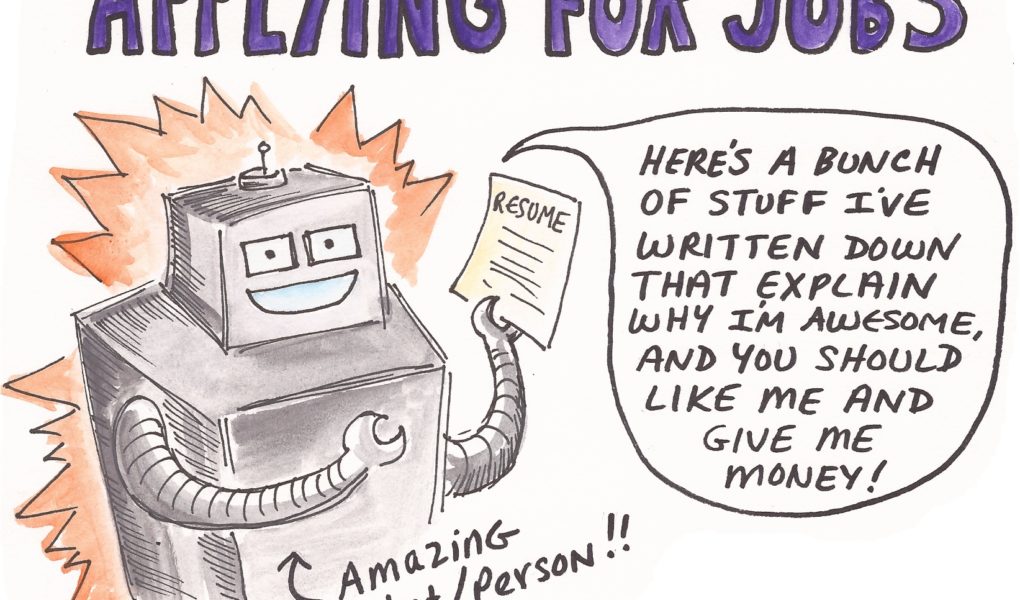 APPLYING FOR JOBS
RESUME
HERE'S A BUNCH
OF STUFF I'VE
WRITTEN DOWN
THAT EXPLAIN
WHY I'M AWESOME,
AND YOU SHOULD
LIKE ME AND
GIVE ME
MONEY!
AMAZING
/PERSON!!